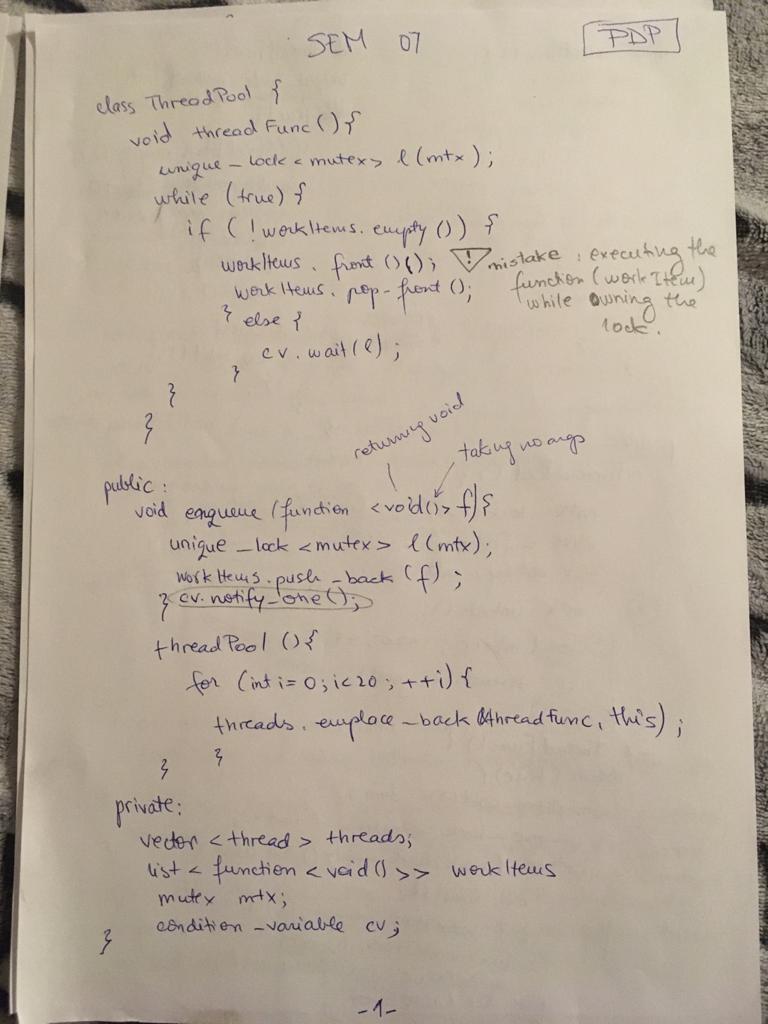 SEM 07
PDP
class ThreadPool {
void threadFunc(){
unique_lock<mutex> l(mtx);
while (true) {
if (!workItems.empty()) {
workItems.front()();
! mistake: executing the
function (work Item)
while owning the
lock.
workItems.pop-front();
} else {
cv.wait(l);
}
}
}
returning void
taking no args
public:
void enqueue (function <void()> f){
unique_lock <mutex> l(mtx);
workItems.push_back(f);
} cv.notify_one();
threadPool (){
for (int i=0; i<20; ++i){
threads.emplace_back(&threadFunc, this);
}
}
private:
vector <thread> threads;
list < function <void()>> workItems
mutex mtx;
condition_variable cv;
}
-1-